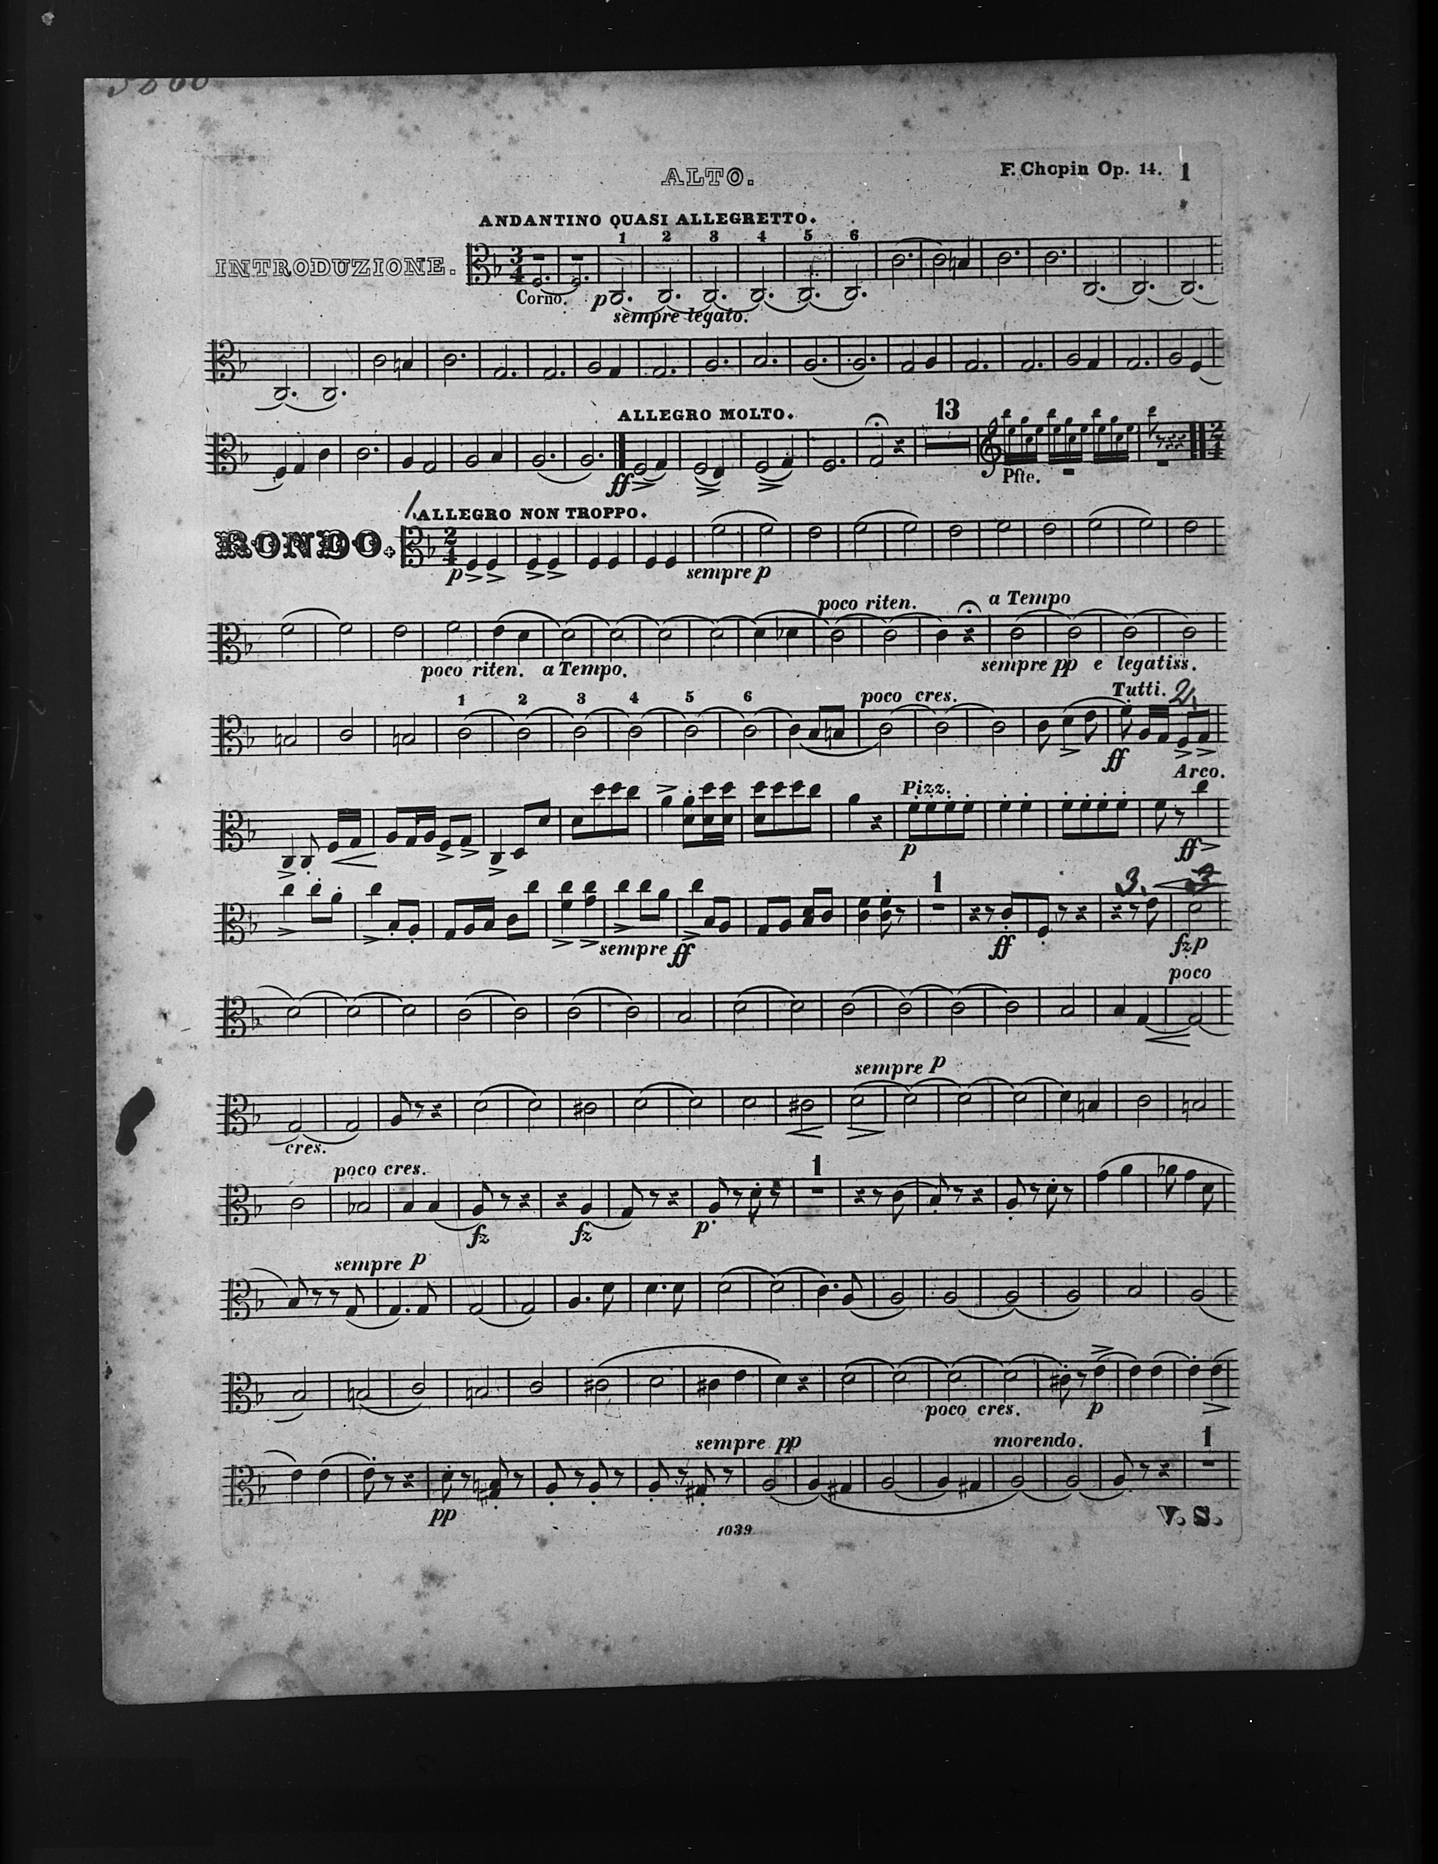 ALTO.
F. Chopin Op. 14. 1
ANDANTINO QUASI ALLEGRETTO.
1 2 3 4 5 6
INTRODUZIONE.
3
4
Corno. p
sempre legato.
ALLEGRO MOLTO.
13
ff
Pfte.
2
4
1. ALLEGRO NON TROPPO.
RONDO.
2
4
p sempre p
poco riten. a Tempo
poco riten. a Tempo. sempre pp e legatiss.
1 2 3 4 5 6 poco cres. Tutti. 2.
ff
Arco.
Pizz.
p ff
1 3. 3
sempre ff ff fzp
poco
sempre p
cres.
poco cres. 1
fz fz p
sempre p
poco cres. p
sempre pp morendo. 1
pp
V. S.
1039